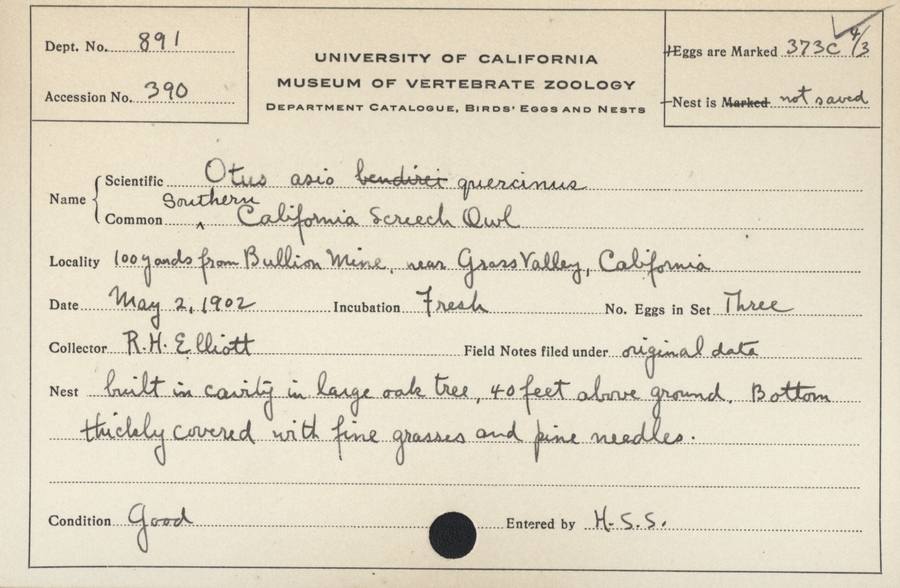 Dept. No. 891
Accession No. 390
UNIVERSITY OF CALIFORNIA
MUSEUM OF VERTEBRATE ZOOLOGY
DEPARTMENT CATALOGUE, BIRDS' EGGS AND NESTS
Eggs are Marked 373c 4/3
Nest is Marked not saved
Name
Scientific Otus asio bendirei quercinus
Southern
Common ^ California Screech Owl
Locality 100 yards from Bullion Mine, near Grass Valley, California
Date May 2, 1902 Incubation Fresh No. Eggs in Set Three
Collector R.H. Elliott Field Notes filed under original data
Nest built in cavity in large oak tree, 40 feet above ground. Bottom
thickly covered with fine grasses and pine needles.
Condition Good Entered by H.S.S.